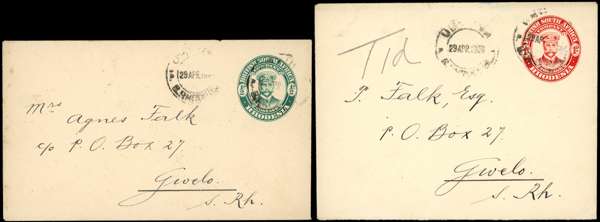 29 APR. 19
BRITISH SOUTH AFRICA
RHODESIA
Mrs Agnes Falk
c/o P. O. Box 27.
Gwelo.
S. Rh.
T1d
29 APR. 19
BRITISH SOUTH AFRICA
RHODESIA
P. Falk, Esq.
P. O. Box 27.
Gwelo.
S. Rh.